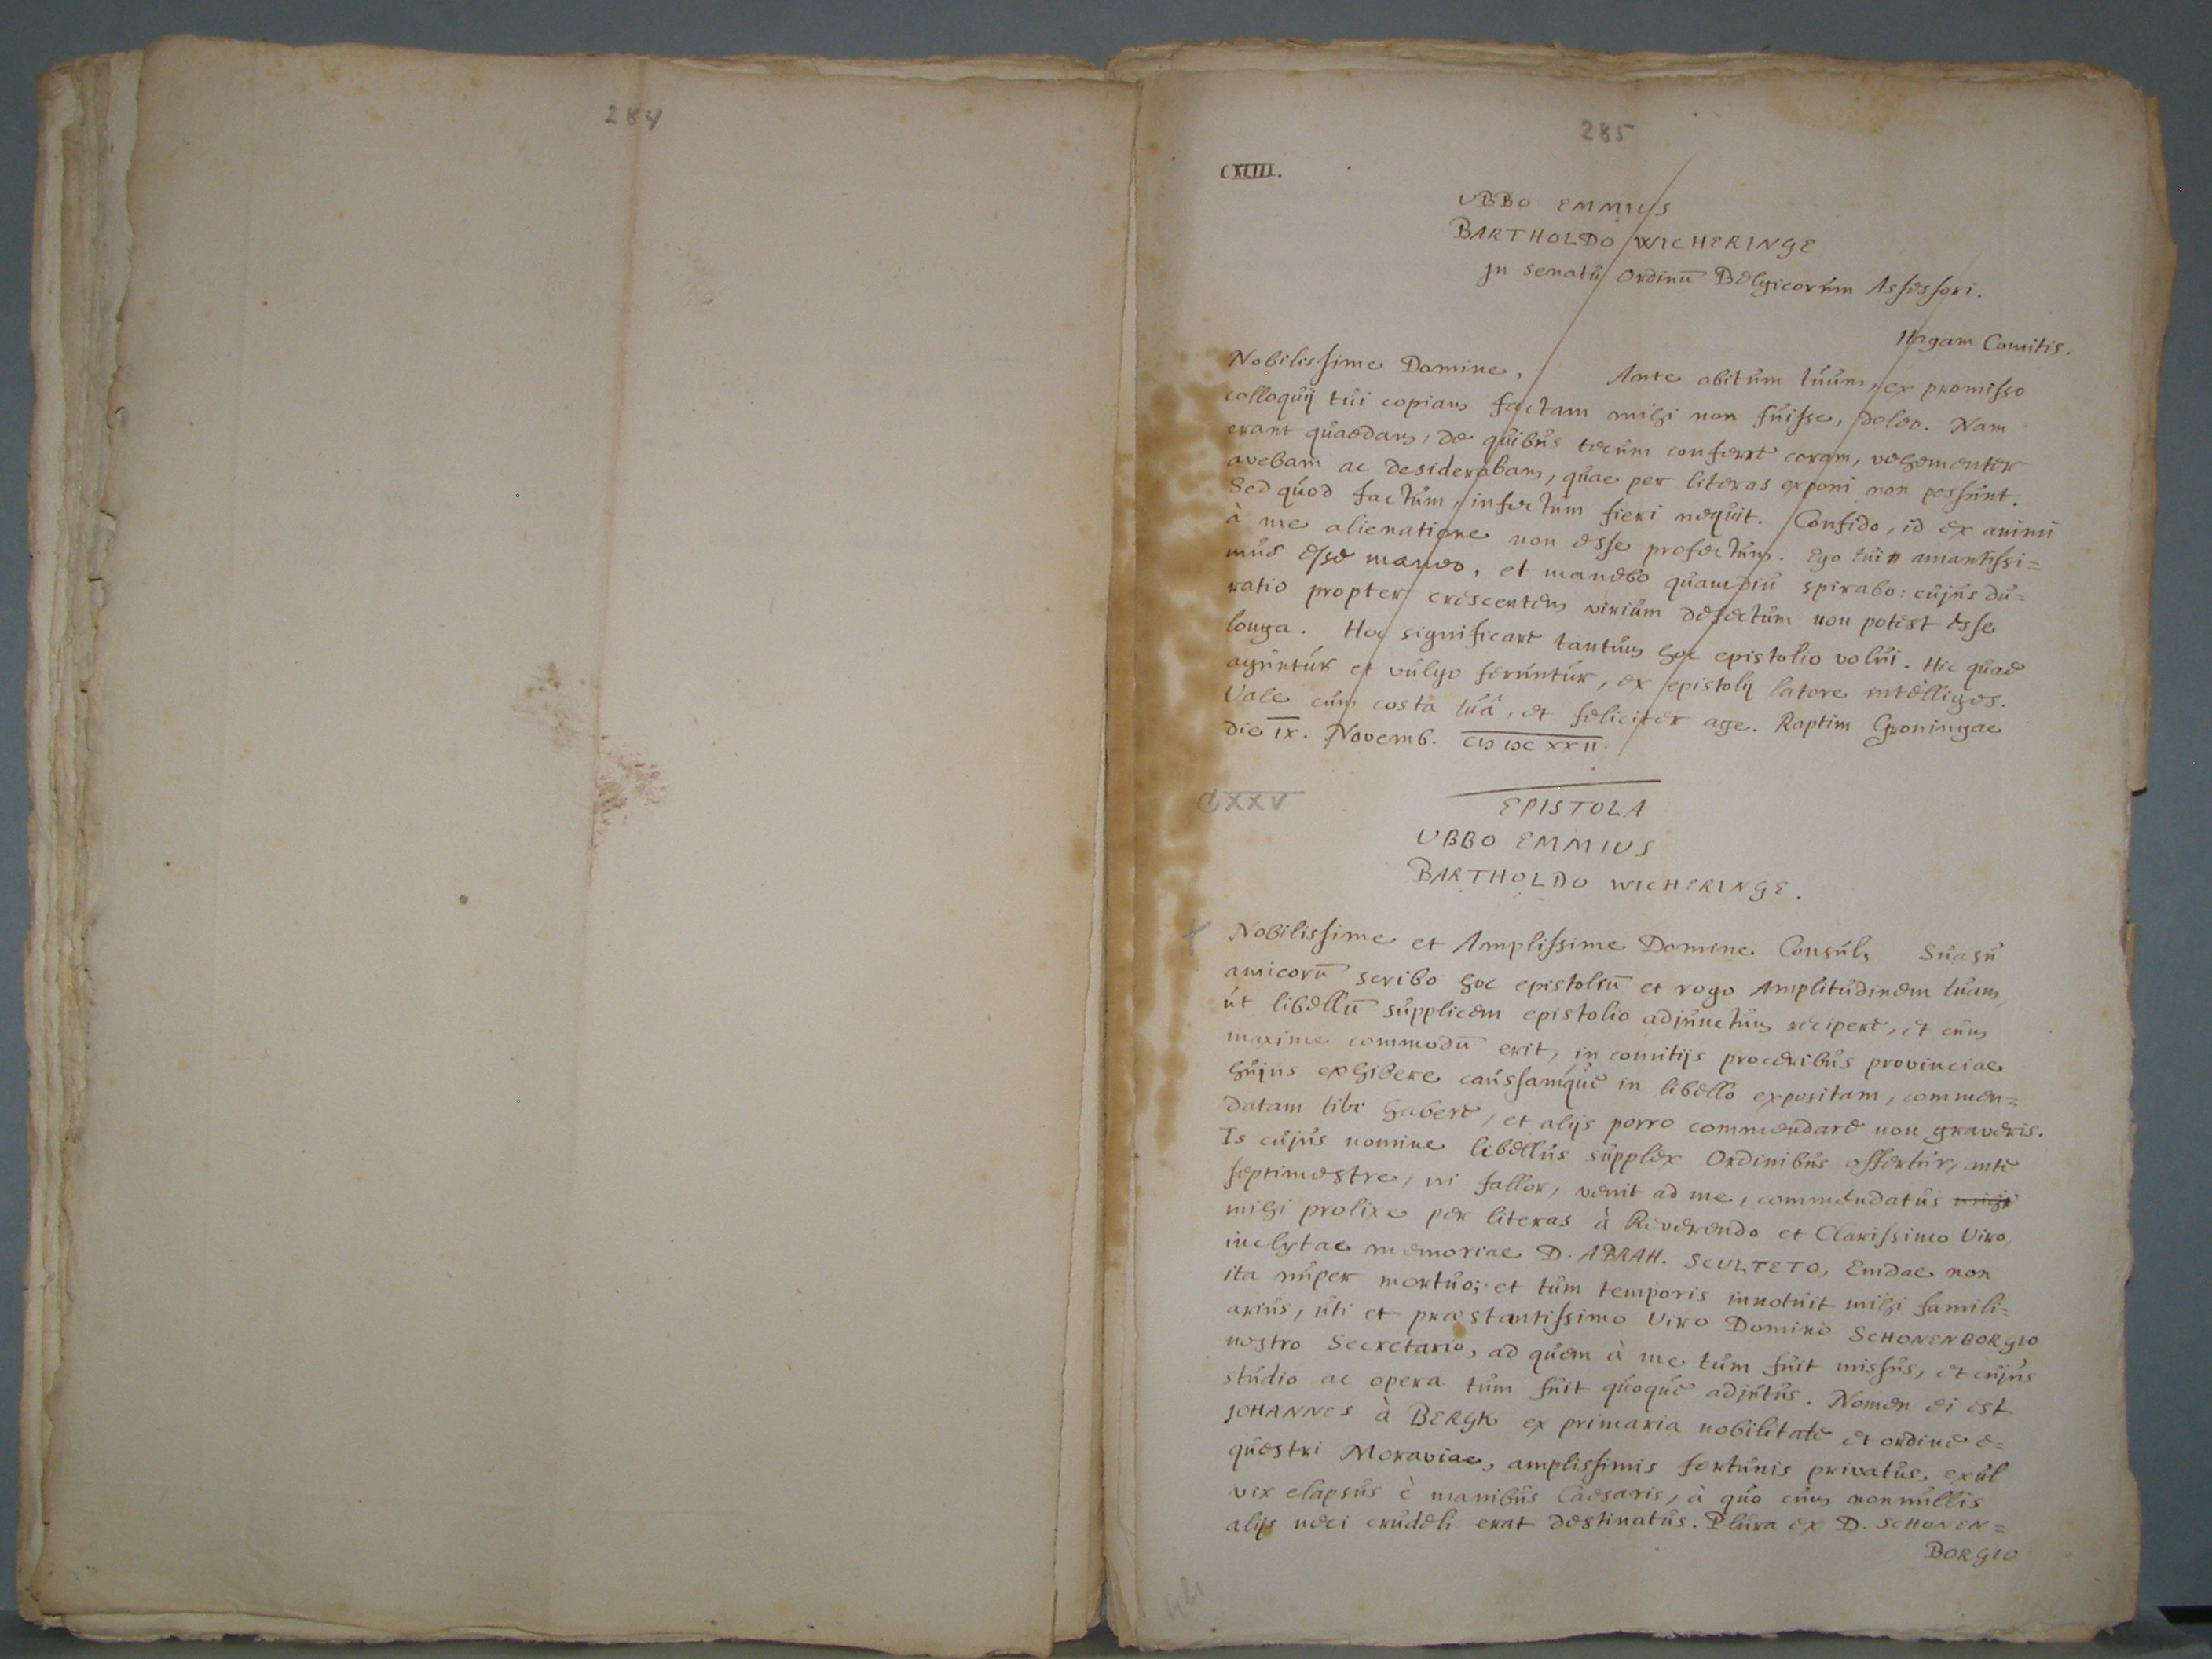 284
285
CXLIII.
UBBO EMMIUS
BARTHOLDO WICHERINGE
Jn senatu Ordinū Belgicorum Assessori.
Hagam Comitis.
Nobilissime Domine, Ante abitum tuum, ex promisso
colloquij tui copiam factam mihi non fuisse, doleo. Nam
erant quaedam, de quibus tecum conferre coram, vehementer
avebam ac desiderabam, quae per literas exponi non possunt.
Sed quod factum, infectum fieri nequit. Confido, id ex animi
à me alienatione non esse profectum. Ego tui amantissi=
mus esse maneo, et manebo quamdiu spirabo: cujus du=
ratio propter crescentem virium defectum non potest esse
longa. Hoc significare tantum hoc epistolio volui. Hic quae
aguntur et vulgo feruntur, ex epistolij latore intelliges.
Vale cum costa tuâ, et feliciter age. Raptim Groningae
die IX. Novemb. CIↃ IↃC XXII.
CXXV
EPISTOLA
UBBO EMMIUS
BARTHOLDO WICHERINGE.
Nobilissime et Amplissime Domine Consul, Suasu
amicorū scribo hoc epistoliū et rogo Amplitudinem tuam,
ut libellū supplicem epistolio adjunctum recipere, et cum
maxime commodū erit, in comitijs proceribus provinciae
hujus exhibere caussamque in libello expositam, commen=
datam tibi habere, et alijs porro commendare non graveris.
Is cujus nomine libellus supplex Ordinibus offertur, ante
septimestre, ni fallor, venit ad me, commendatus mihi
mihi prolixe per literas à Reverendo et Clarissimo Viro,
inclytae memoriae D. ABRAH. SCULTETO, Emdae non
ita nuper mortuo; et tum temporis innotuit mihi famili=
arius, uti et praestantissimo Viro Domino SCHONENBORGIO
nostro Secretario, ad quem à me tum fuit missus, et cujus
studio ac opera tum fuit quoque adjutus. Nomen ei est
JOHANNES à BERGK ex primaria nobilitate et ordine e=
questri Moraviae, amplissimis fortunis privatus, exul
vix elapsus è manibus Caesaris, à quo cum nonnullis
alijs neci crudeli erat destinatus. Plura ex D. SCHONEN=
BORGIO